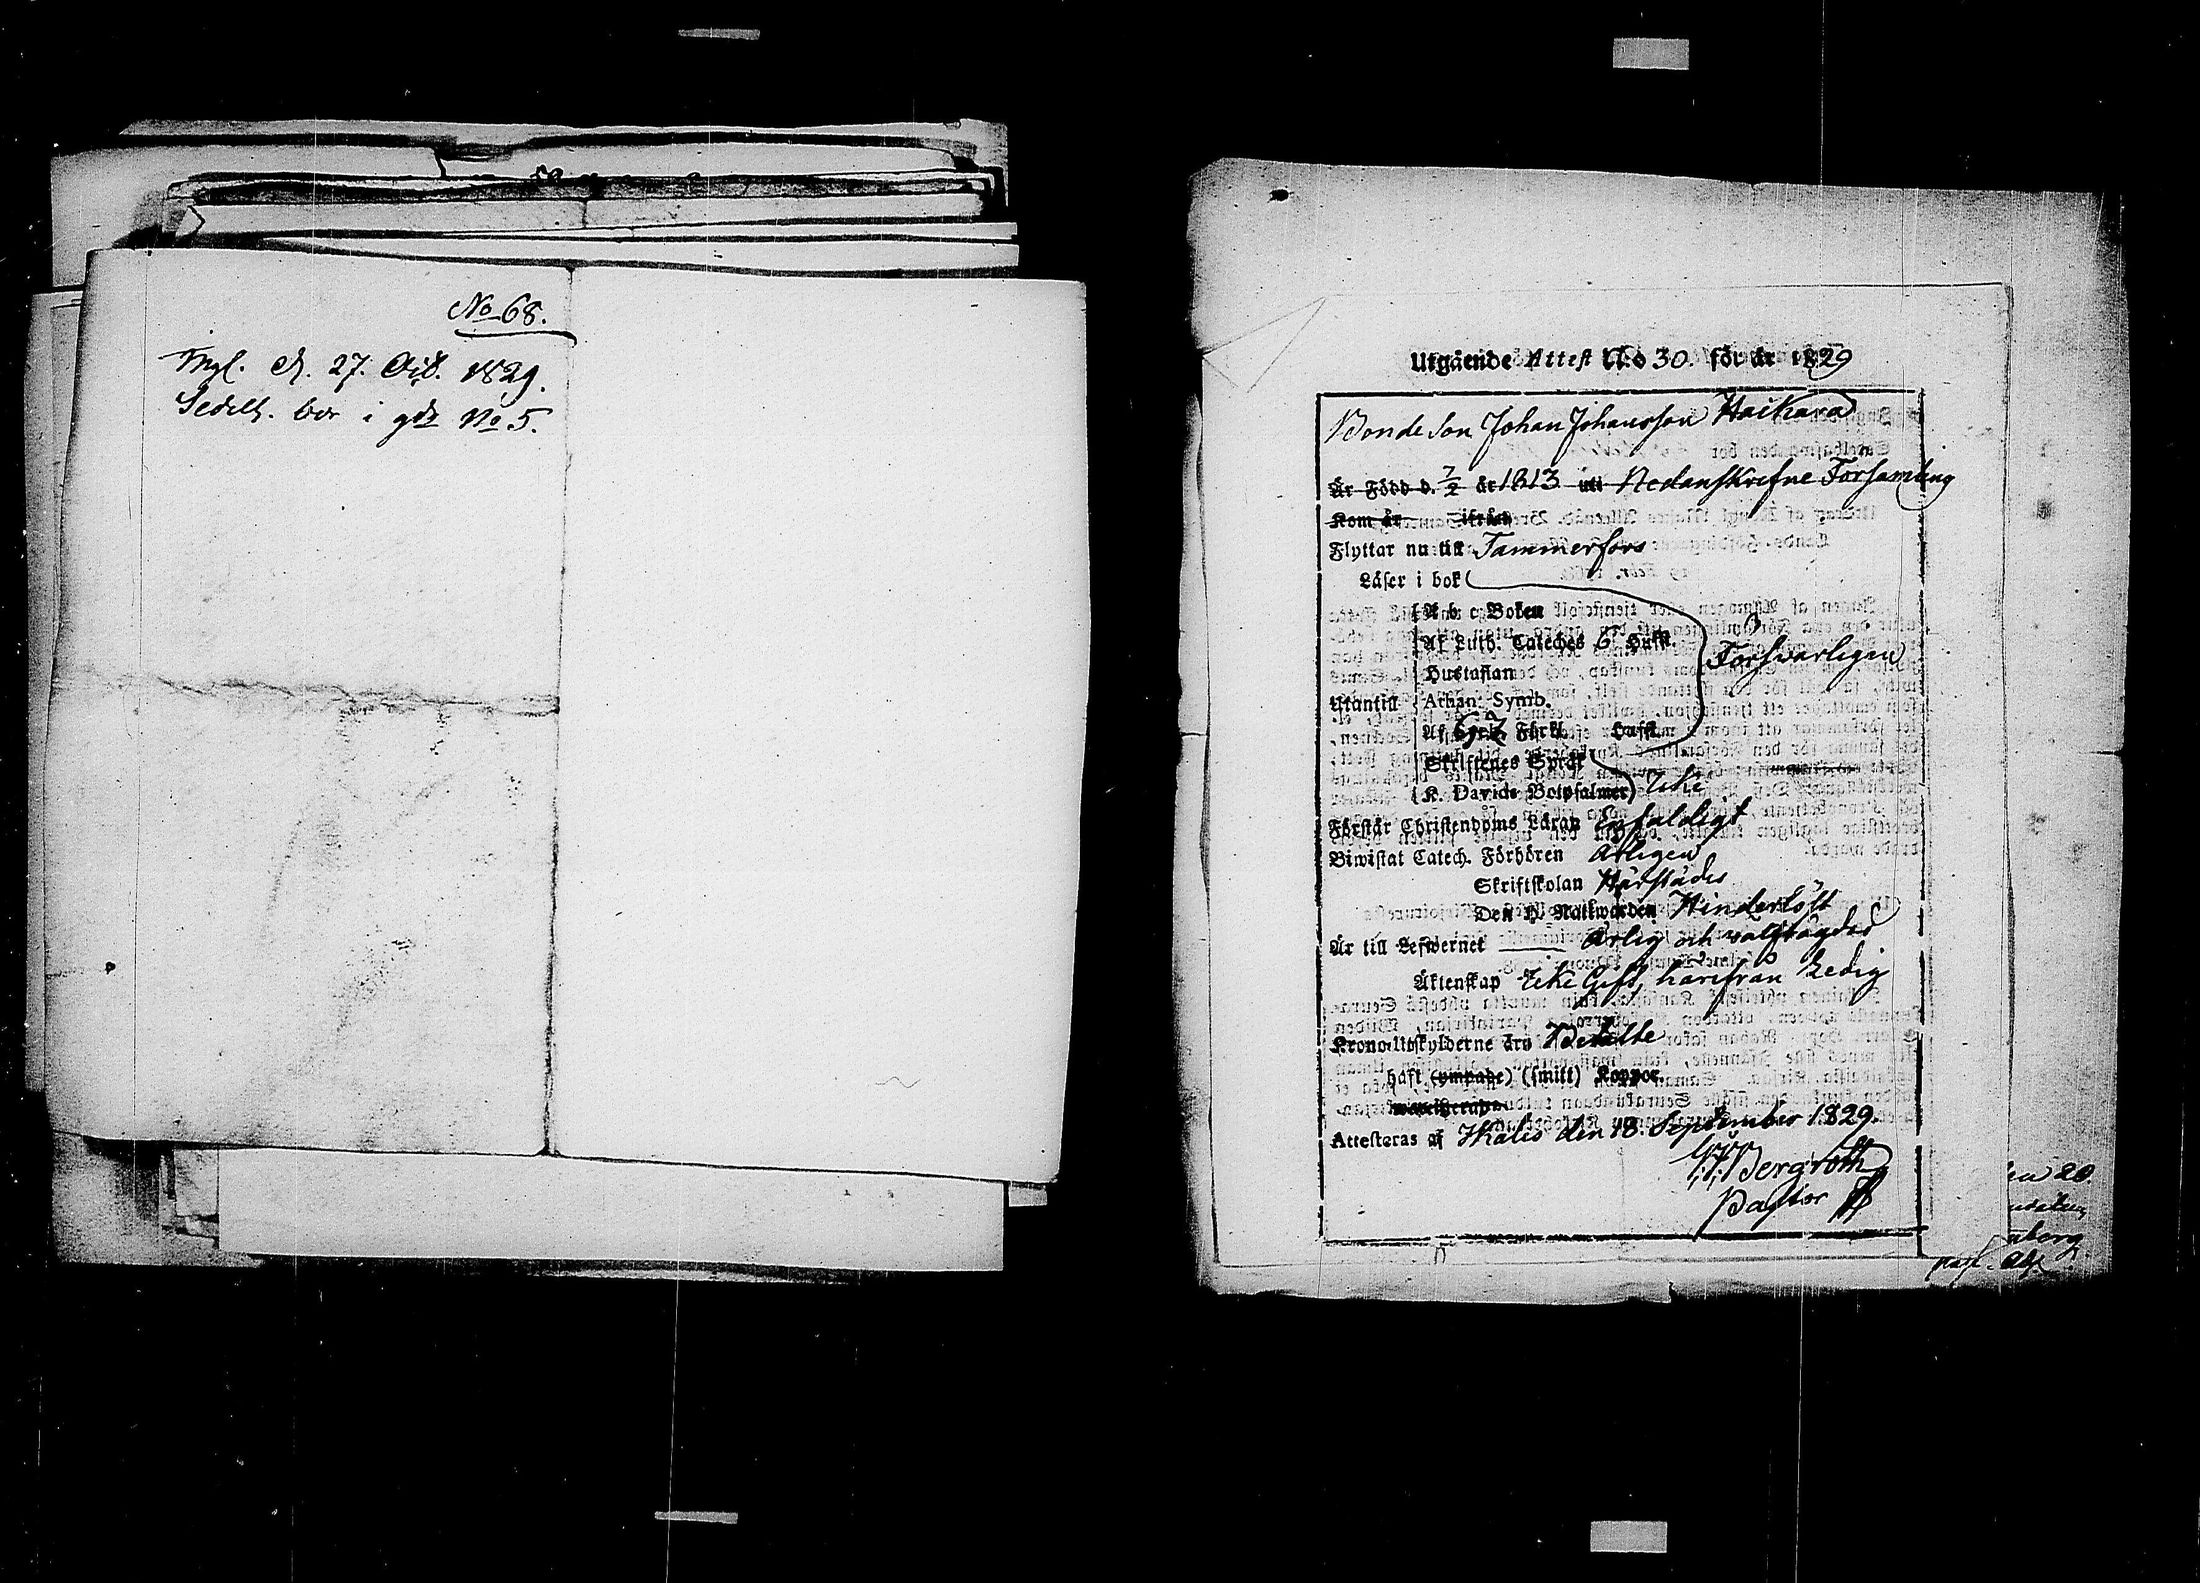 No 68.
d. 27. Oct. 1829.
bor i gdn No 5.
Utgående Attest No 30. för år 1829
Bonde Son Johan Johansson Haikara
Är Född d. 7/2 år 1813 uti Nedanskrefne Församling
Kom år ifrån
Flyttar nu till Tammerfors
Läser i bok
A b c Boken
Af Luth. Cateches 6 Hufst.
Försvarligen
Hustaflan
Utantill Athan. Symb.
Af Förkl. Hufst.
Skriftenes Språk
K. Davids Botpsalmer Icke
Förstår Christendoms Läran Enfaldigt
Biwistat Catech. Förhören Årligen
Skriftskolan Härstädes
Den H. Nattwarden Hinderlöst
Är till Lefwernet Ärlig och välfrägdad
Äktenskap Icke Gift, härifrån Ledig
Krono-Utskylderne äro Betalte
haft (ympade) (smitt) Koppor.
Attesteras af Ikalis den 18. September 1829.
Bergroth
Pastor